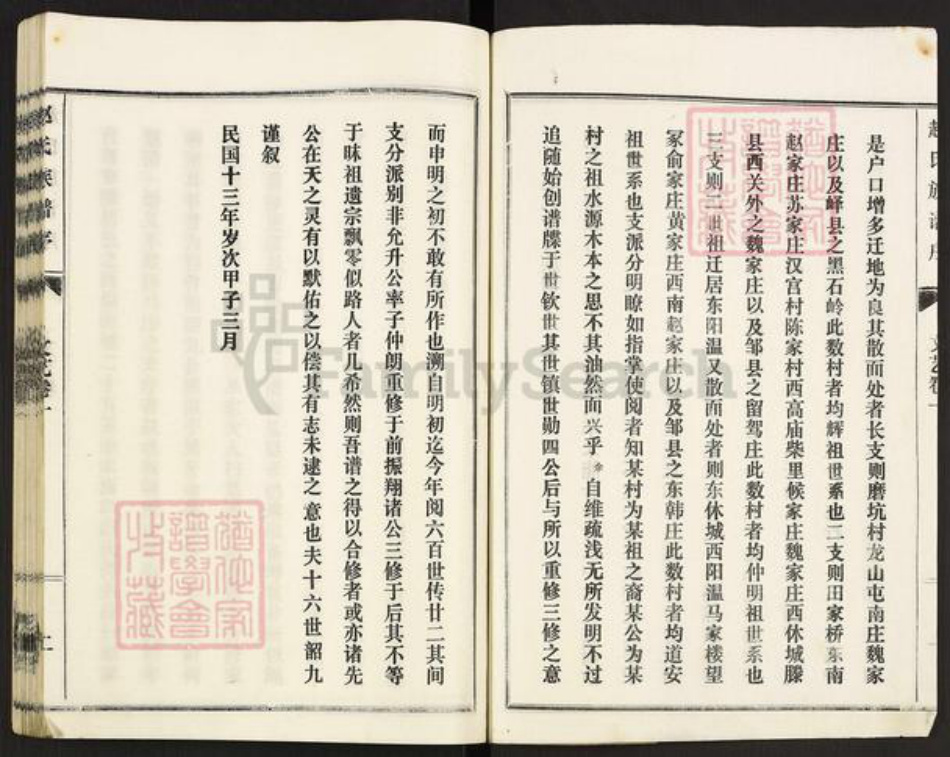 是户口增多迁地为良其散而处者长支则磨坑村龙山屯南庄魏家
庄以及峄县之黑石岭此数村者均辉祖世系也二支则田家桥东南
赵家庄苏家庄汉宫村陈家村西高庙柴里候家庄魏家庄西休城滕
县西关外之魏家庄以及邹县之留驾庄此数村者均仲明祖世系也
三支则二世祖迁居东阳温又散而处者则东休城西阳温马家楼望
冢俞家庄黄家庄西南赵家庄以及邹县之东韩庄此数村者均道安
祖世系也支派分明瞭如指掌使阅者知某村为某祖之裔某公为某
村之祖水源木本之思不其油然而兴乎余自维疏浅无所发明不过
追随始创谱牒于世钦世其世镇世勋四公后与所以重修三修之意
而申明之初不敢有所作也溯自明初迄今年阅六百世传廿二其间
支分派别非允升公率子仲朗重修于前振翔诸公三修于后其不等
于昧祖遗宗飘零似路人者几希然则吾谱之得以合修者或亦诸先
公在天之灵有以默佑之以偿其有志未逮之意也夫十六世韶九
谨叙
民国十三年岁次甲子三月
赵氏族谱序
文艺卷一
FamilySearch
收藏
谱学会